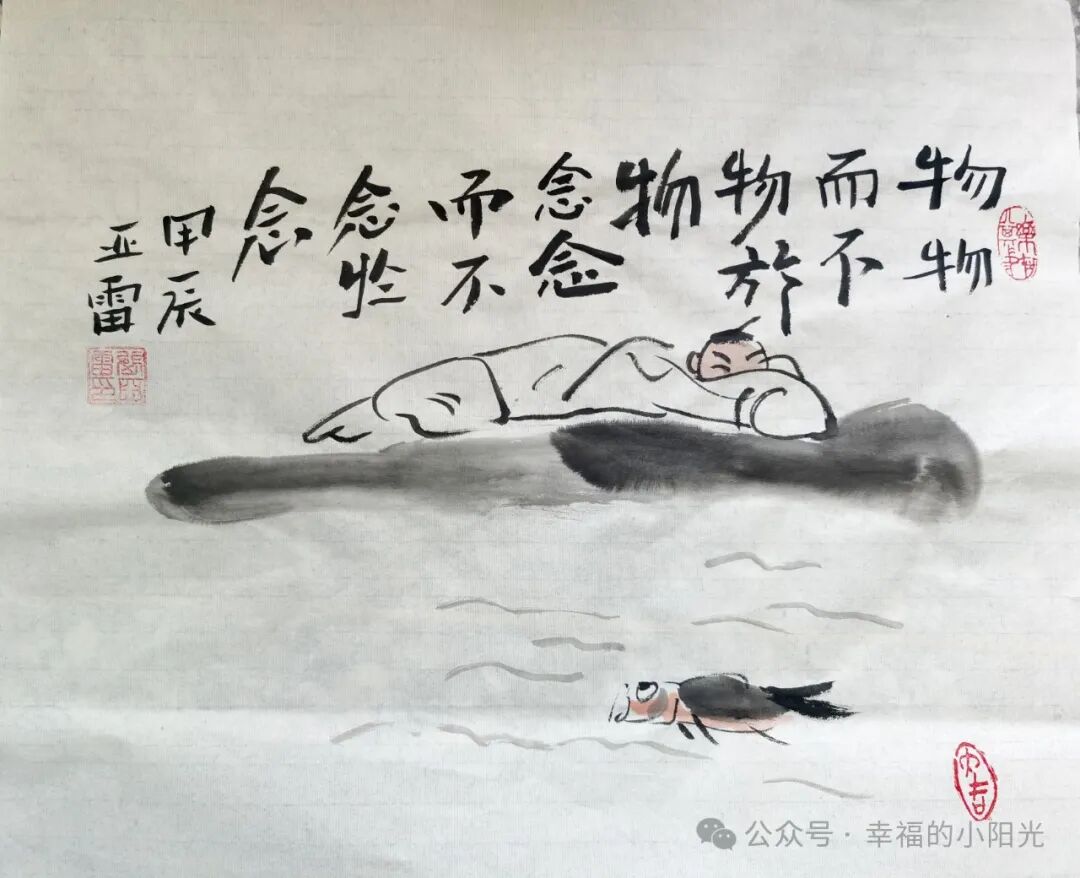 物物
而不
物於
物
念念
而不
念於
念
甲辰
亚雷
大吉
公众号·幸福的小阳光